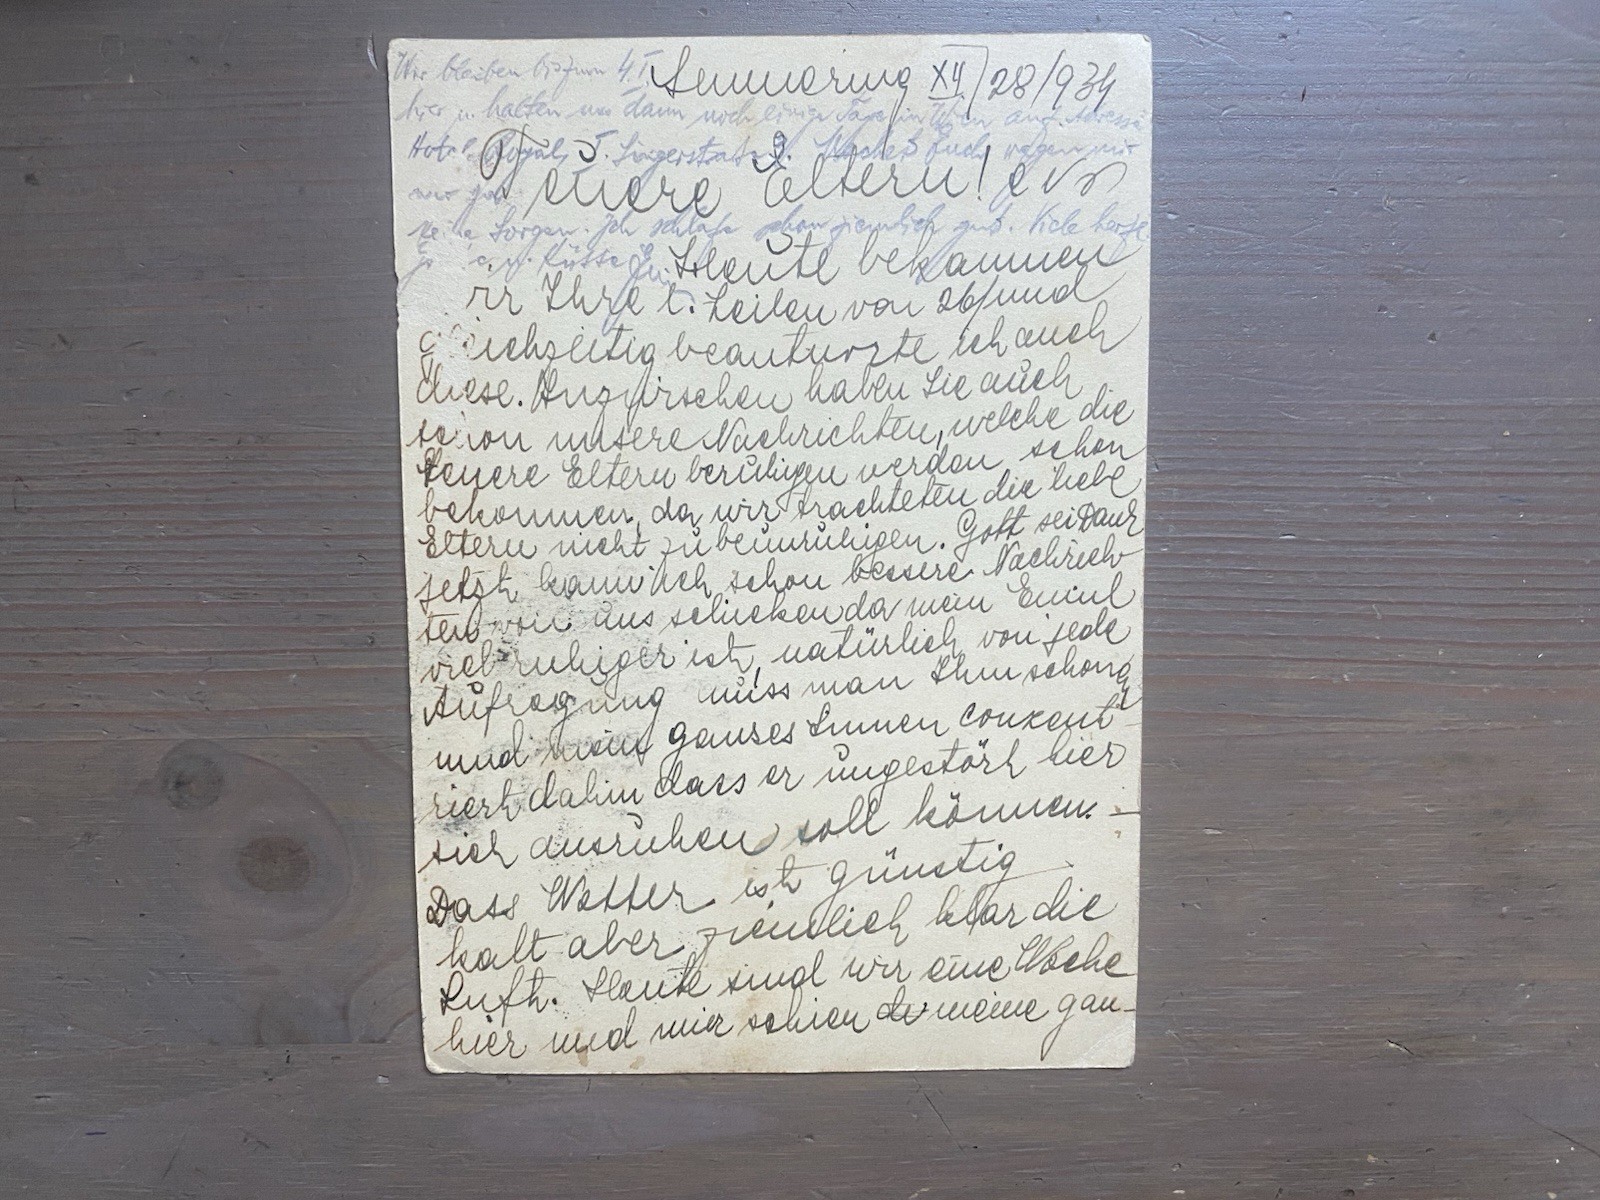 Wir bleiben bis zum 4.I.
hier u. halten uns dann noch einige Tage in Wien auf. Adresse
Hotel Royal, I. Singerstrasse. Machet Euch wegen mir
nur gar
keine Sorgen. Ich schlafe schon ziemlich gut. Viele herzl.
u. Küsse
Semmering XII/28/934
Teuere Eltern!
Heute bekammen
wir Ihre l. Zeilen von 26/und
gleichzeitig beantworte ich auch
diese. Inzwischen haben Sie auch
schon unsere Nachrichten, welche die
teuere Eltern beruhigen werden schon
bekommen, da wir trachteten die liebe
Eltern nicht zu beunruhigen. Gott sei Dank
jetzt kann ich schon bessere Nachrich-
ten von uns schicken da mein Emil
viel ruhiger ist, natürlich von jede
Aufregung muss man Ihm schonen
und mein ganses Sinnen conxent-
riert dahin dass er ungestört hier
sich ausruhen soll können. –
Dass Wetter ist günstig
kalt aber ziemlich klar die
Luft. Heute sind wir eine Woche
hier und mir schien meine gan-